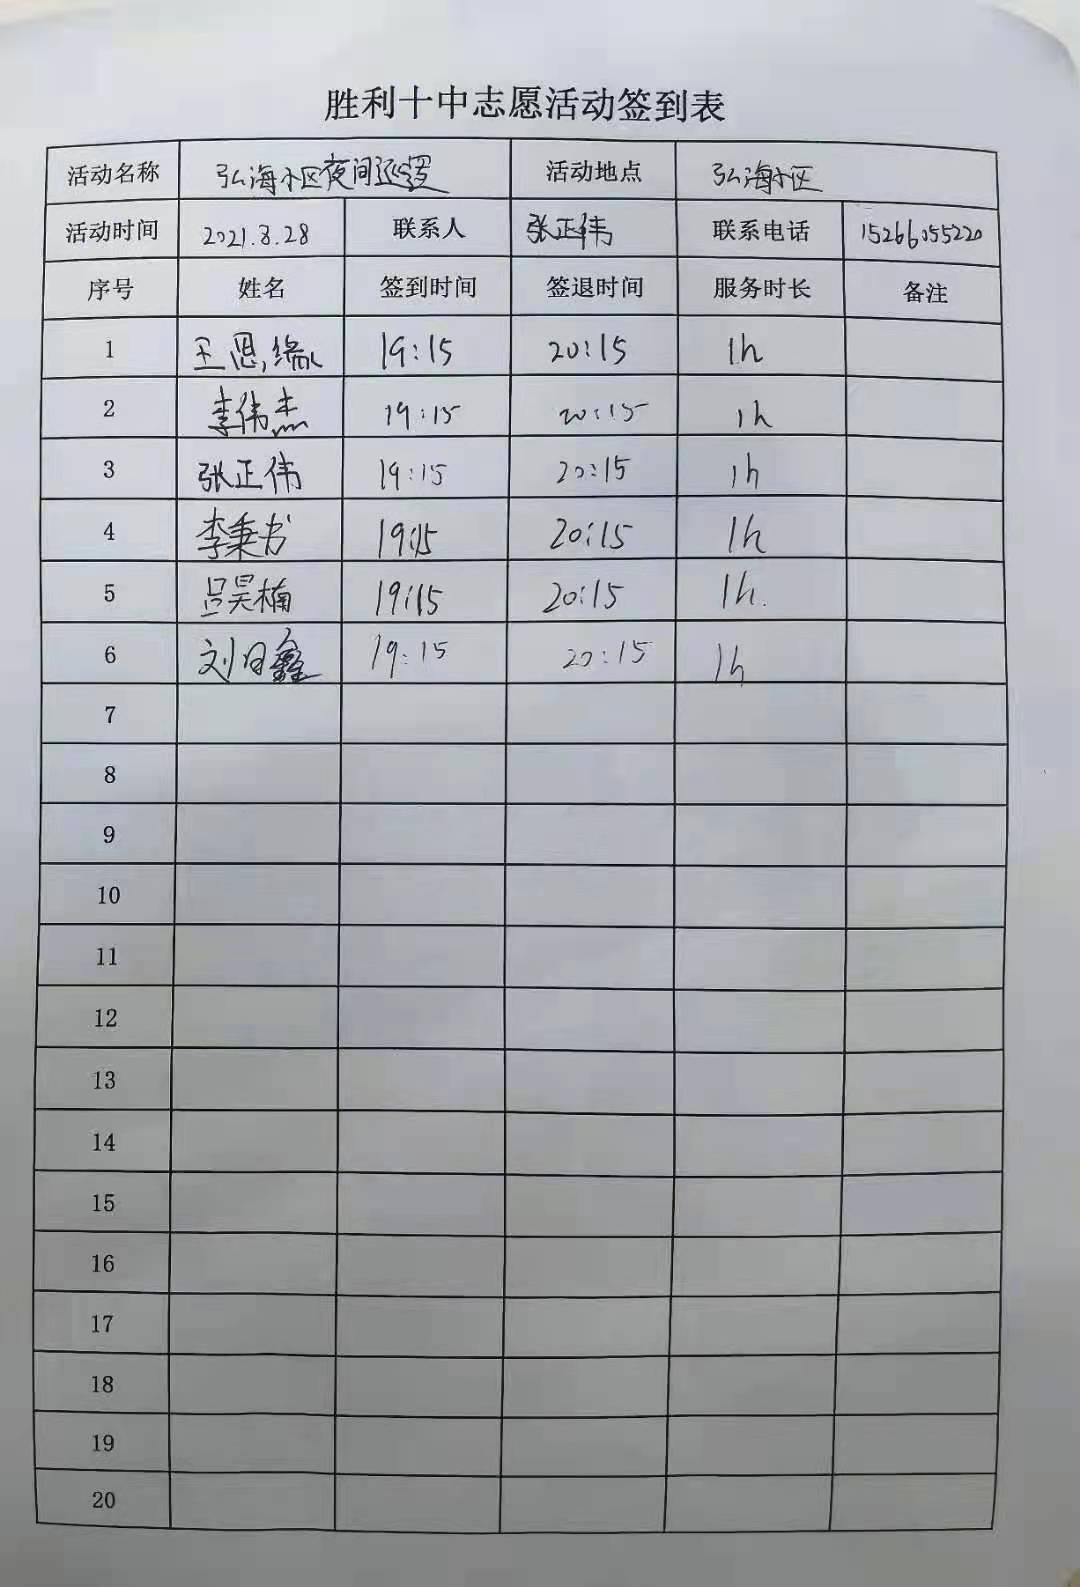 胜利十中志愿活动签到表
活动名称 弘海小区夜间巡逻 活动地点 弘海小区
活动时间 2021.8.28 联系人 张正伟 联系电话 15266055220
序号 姓名 签到时间 签退时间 服务时长 备注
1 王恩缘 19:15 20:15 1h
2 李伟杰 19:15 20:15 1h
3 张正伟 19:15 20:15 1h
4 李秉书 19:15 20:15 1h
5 吕昊楠 19:15 20:15 1h.
6 刘日鑫 19:15 20:15 1h
7
8
9
10
11
12
13
14
15
16
17
18
19
20